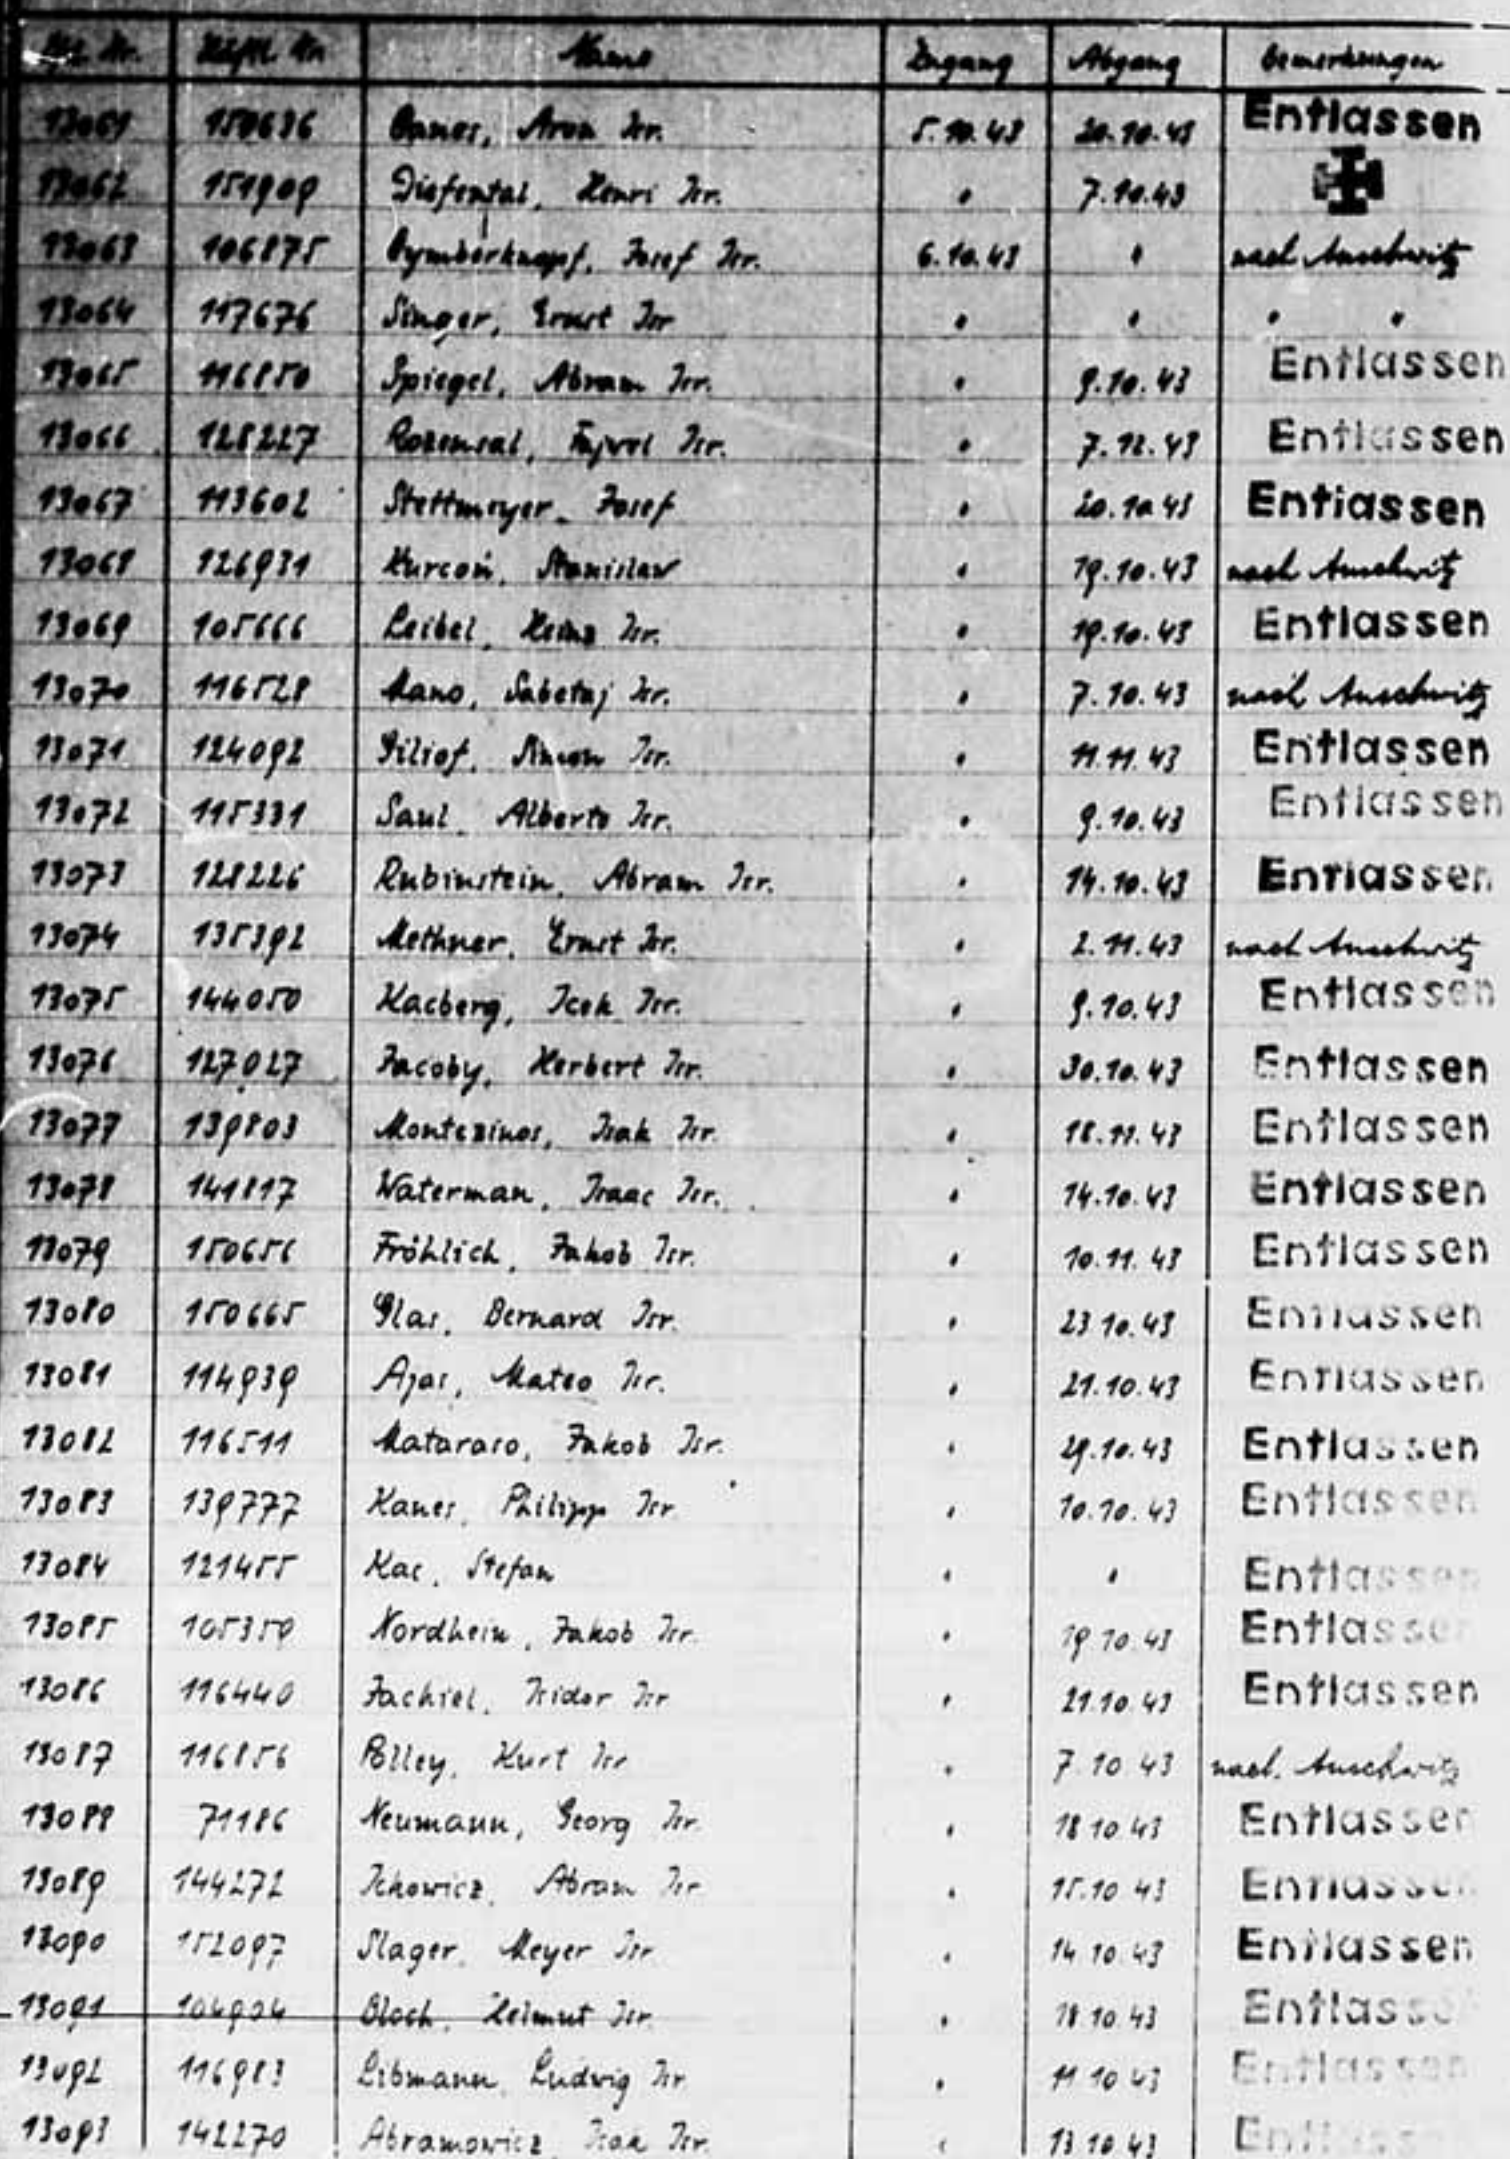 Name Zugang Abgang Bemerkungen
13061 150636 Aron Isr. 5.10.43 20.10.43 Entlassen
13062 151909 Diefental, Henri Isr. " 7.10.43
13063 106875 Cymberknopf, Josef Isr. 6.10.43 " nach Auschwitz
13064 117676 Singer, Ernst Isr " " " "
13065 116850 Spiegel, Abram Isr. " 9.10.43 Entlassen
13066 128227 Rozensal, Fajwel Isr. " 7.12.43 Entlassen
13067 113602 Stettmeyer, Josef " 20.10.43 Entlassen
13068 126931 Stanislaw " 19.10.43 nach Auschwitz
13069 105666 Leibel, Heinz Isr. " 19.10.43 Entlassen
13070 116528 Mano, Sabetaj Isr. " 7.10.43 nach Auschwitz
13071 124092 Simon Isr. " 11.11.43 Entlassen
13072 115331 Saul, Alberto Isr. " 9.10.43 Entlassen
13073 128226 Rubinstein, Abram Isr. " 14.10.43 Entlassen
13074 135392 Methner, Ernst Isr. " 2.11.43 nach Auschwitz
13075 144050 Kacberg, Icek Isr. " 9.10.43 Entlassen
13076 127027 Jacoby, Herbert Isr. " 30.10.43 Entlassen
13077 139803 Montezinos, Isak Isr. " 18.11.43 Entlassen
13078 141817 Waterman, Isaac Isr. " 14.10.43 Entlassen
13079 150656 Fröhlich, Jakob Isr. " 10.11.43 Entlassen
13080 150665 Glas, Bernard Isr. " 23.10.43 Entlassen
13081 114939 Ajas, Mateo Isr. " 21.10.43 Entlassen
13082 116511 Mataraso, Jakob Isr. " 29.10.43 Entlassen
13083 139777 Kanes, Philipp Isr " 10.10.43 Entlassen
13084 121455 Kac, Stefan " " Entlassen
13085 105350 Nordheim, Jakob Isr. " 19.10.43 Entlassen
13086 116440 Jachiel, Isidor Isr " 21.10.43 Entlassen
13087 116856 Polley, Kurt Isr " 7.10.43 nach Auschwitz
13088 71186 Neumann, Georg Isr. " 18.10.43 Entlassen
13089 144272 Ickowicz, Abram Isr " 15.10.43 Entlassen
13090 152097 Slager, Meyer Isr " 14.10.43 Entlassen
13091 104904 Bloch, Helmut Isr. " 18.10.43 Entlassen
13092 116983 Libmann, Ludwig Isr. " 11.10.43 Entlassen
13093 142270 Abramowicz, Isaak Isr. " 13.10.43 Entlassen